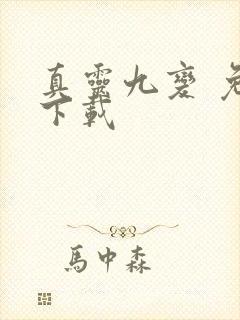 真靈九變 免
下載
馬中森